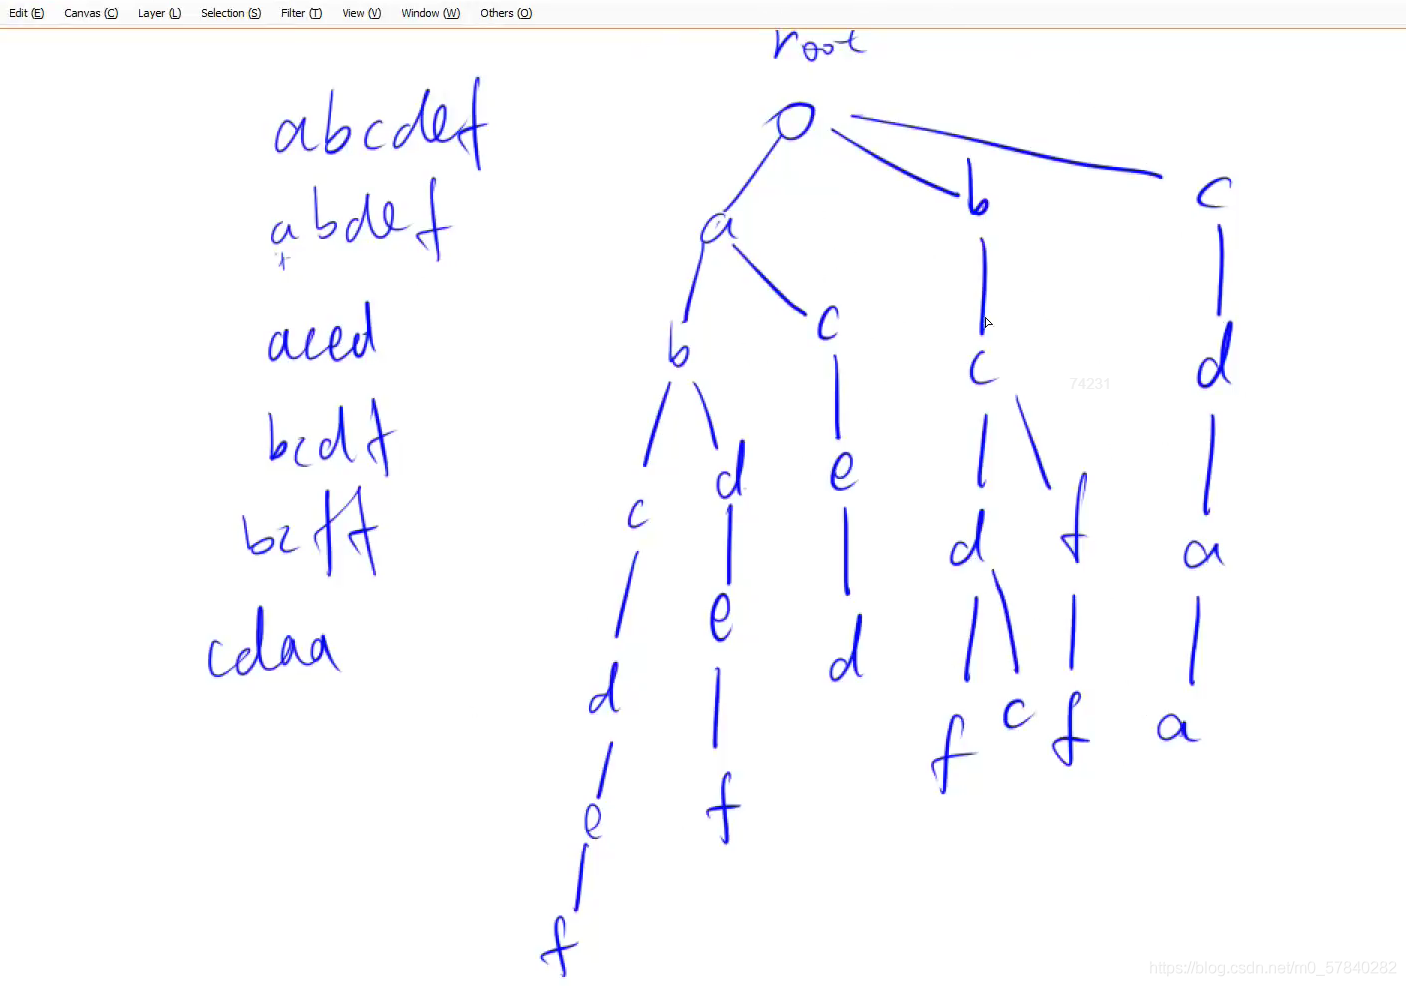 Edit (E) Canvas (C) Layer (L) Selection (S) Filter (T) View (V) Window (W) Others (O)
root
abcdef
abdef
aced
bcdf
bcff
cdaa
a b c
b c c d
c d e d f a
d e d f c f a
e f
f
74231
https://blog.csdn.net/m0_57840282